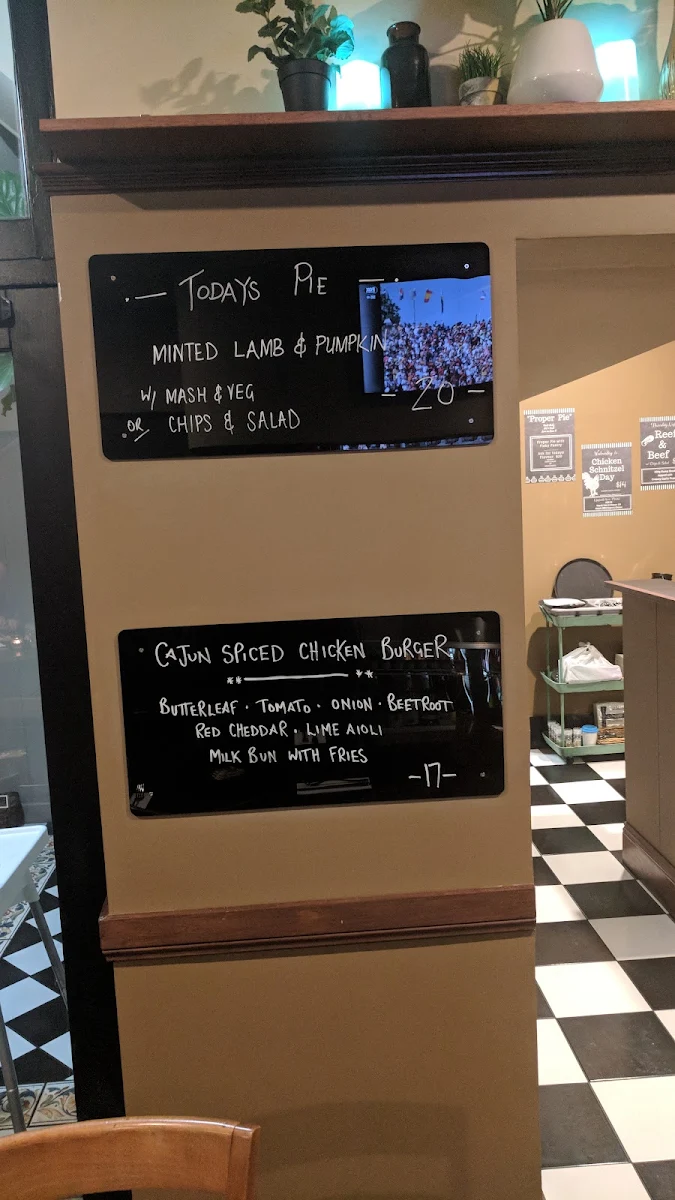 — TODAYS PIE —
MINTED LAMB & PUMPKIN
W/ MASH & VEG
OR CHIPS & SALAD
- 20 -
CAJUN SPICED CHICKEN BURGER
BUTTERLEAF · TOMATO · ONION · BEETROOT
RED CHEDDAR · LIME AIOLI
MILK BUN WITH FRIES
-17-
"Proper Pie"
Chicken
Schnitzel
Day
$14
Reef
&
Beef